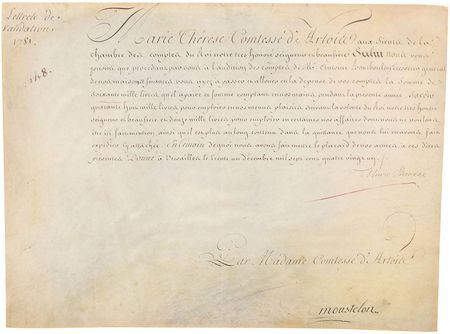 Lettres de
Validation
1781.
148.
Marie Thérese Comtesse d'Artois aux Sieurs de la
chambre des comptes du Roi notre tres honoré seigneur et beaufrere Salut nous
prions que procedans par vous à l'adition des comptes de Mr. Antoine tresorier general
de nos maisons et finances vous ayez à passer et allouer en la depense de nos comptes la Somme de
soixante mille livres qu'il a payée et fournie comptant en nos mains pendant la presente année Savoir
quarante huit mille livres pour employer en nos menus plaisirs suivant la volonté du Roi notre tres honoré
seigneur et beaufrere et douze mille livres pour employer en certaines nos affaires dont nous ne voulons
être ici fait mention ainsi qu'il est plus au long contenu dans la quittance que nous lui en avons fait
expedier cy attachée En temoin de quoi nous avons fait mettre le placard de nos armes à ces dites
presentes Donné à Versailles le trente un décembre mil sept cent quatre vingt un
Marie Therese
Par Madame Comtesse d'Artois
moustelon